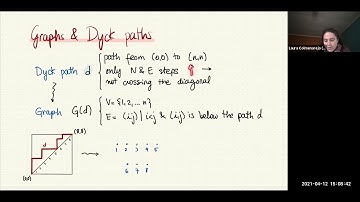 Graphs & Dyck paths
path from (0,0) to (n,n)
Dyck path d
only N & E steps
not crossing the diagonal
Graph G(d)
V = {1,2,...n}
E = (i,j) | i<j & (i,j) is below the path d
(n,n)
d
(0,0)
1 2 3 4 5
6 7 8
2021-04-12 15:08:42